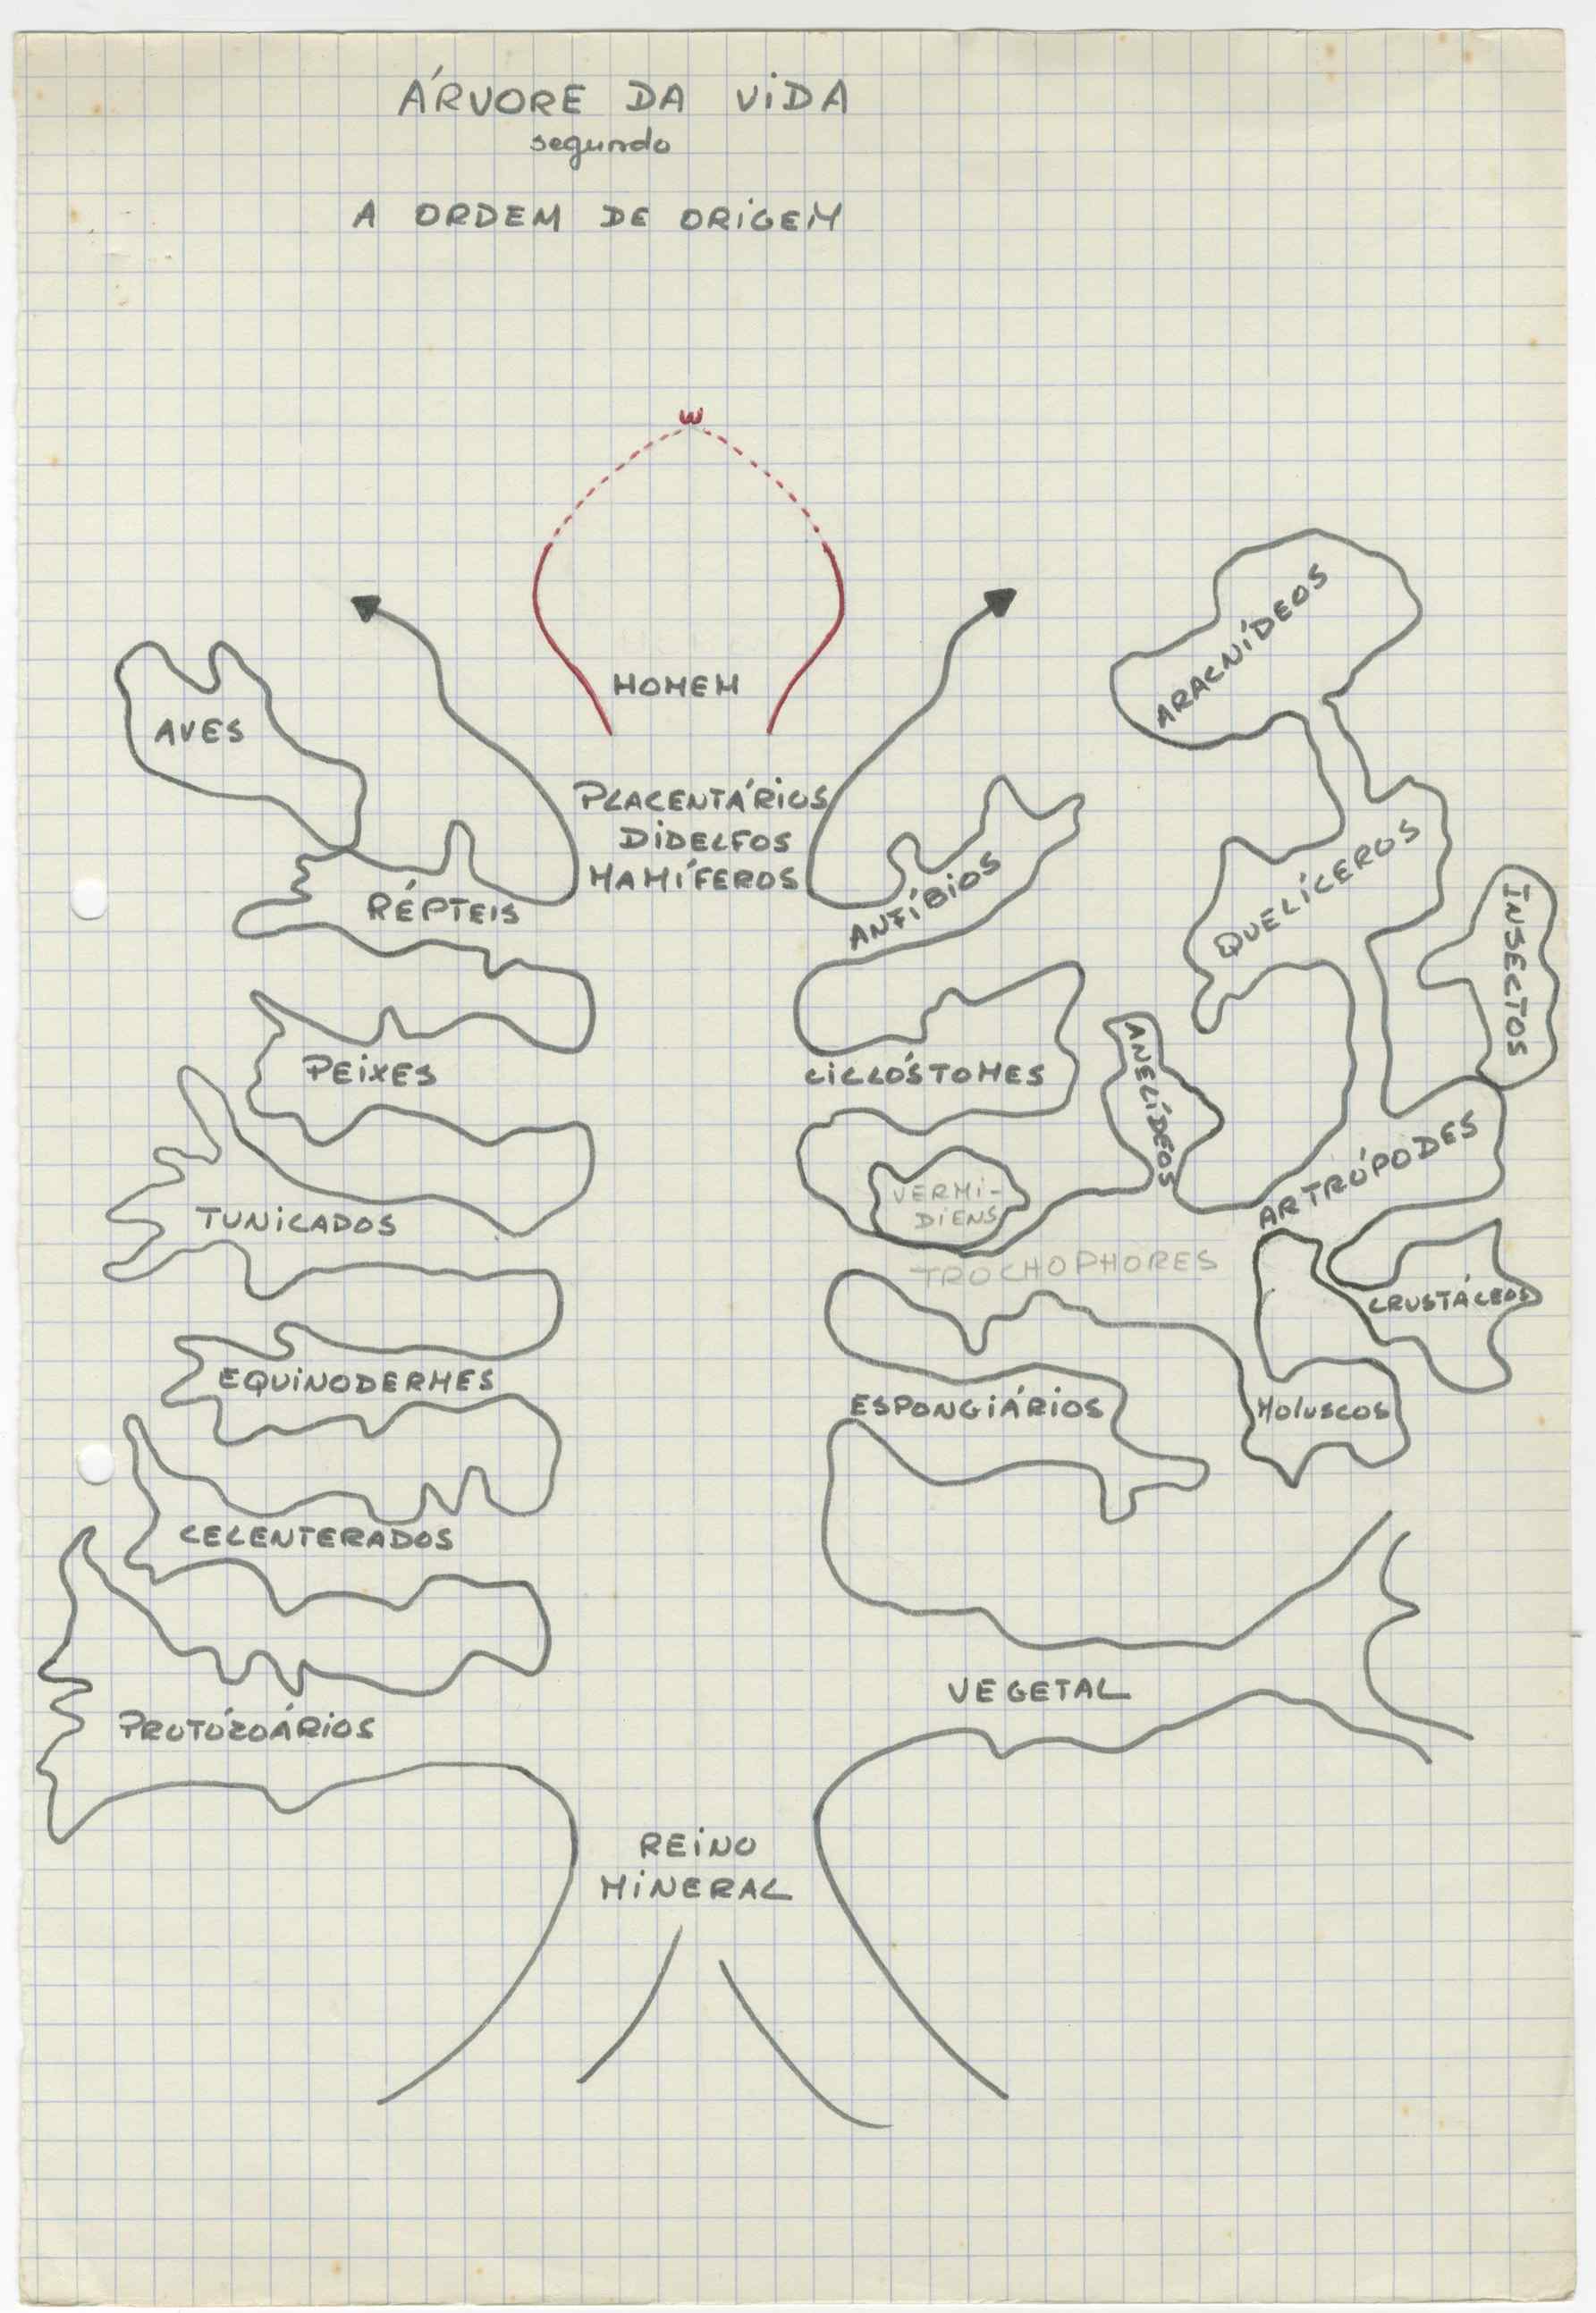 ÁRVORE DA VIDA
segundo
A ORDEM DE ORIGEM
ω
HOMEM
ARACNÍDEOS
AVES
PLACENTÁRIOS
DIDELFOS
MAMÍFEROS
RÉPTEIS
ANFÍBIOS
QUELÍCEROS
INSECTOS
PEIXES
CICLÓSTOMES
ANELÍDEOS
ARTRÓPODES
VERMI-
DIENS
TUNICADOS
TROCHOPHORES
CRUSTÁCEOS
EQUINODERMES
ESPONGIÁRIOS
MOLUSCOS
CELENTERADOS
VEGETAL
PROTÓZOÁRIOS
REINO
MINERAL